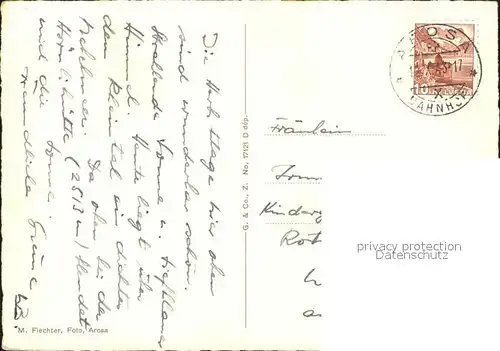 Die Herbsttage hier oben
sind wunderbar schön.
Strahlende Sonne u. tiefblauer
Himmel. Heute liegt über
dem Rheintal ein dichtes
Nebelmeer. Da oben bei der
Hörnlihütte (2513 m) blendet
und die Sonne.
Freundliche Grüsse
M. Fiechter, Foto, Arosa
G. & Co., Z. No. 17121 D dép.
AROSA
17
BAHNHOF
10
Fräulein
Kinderg
Rot
privacy protection
Datenschutz